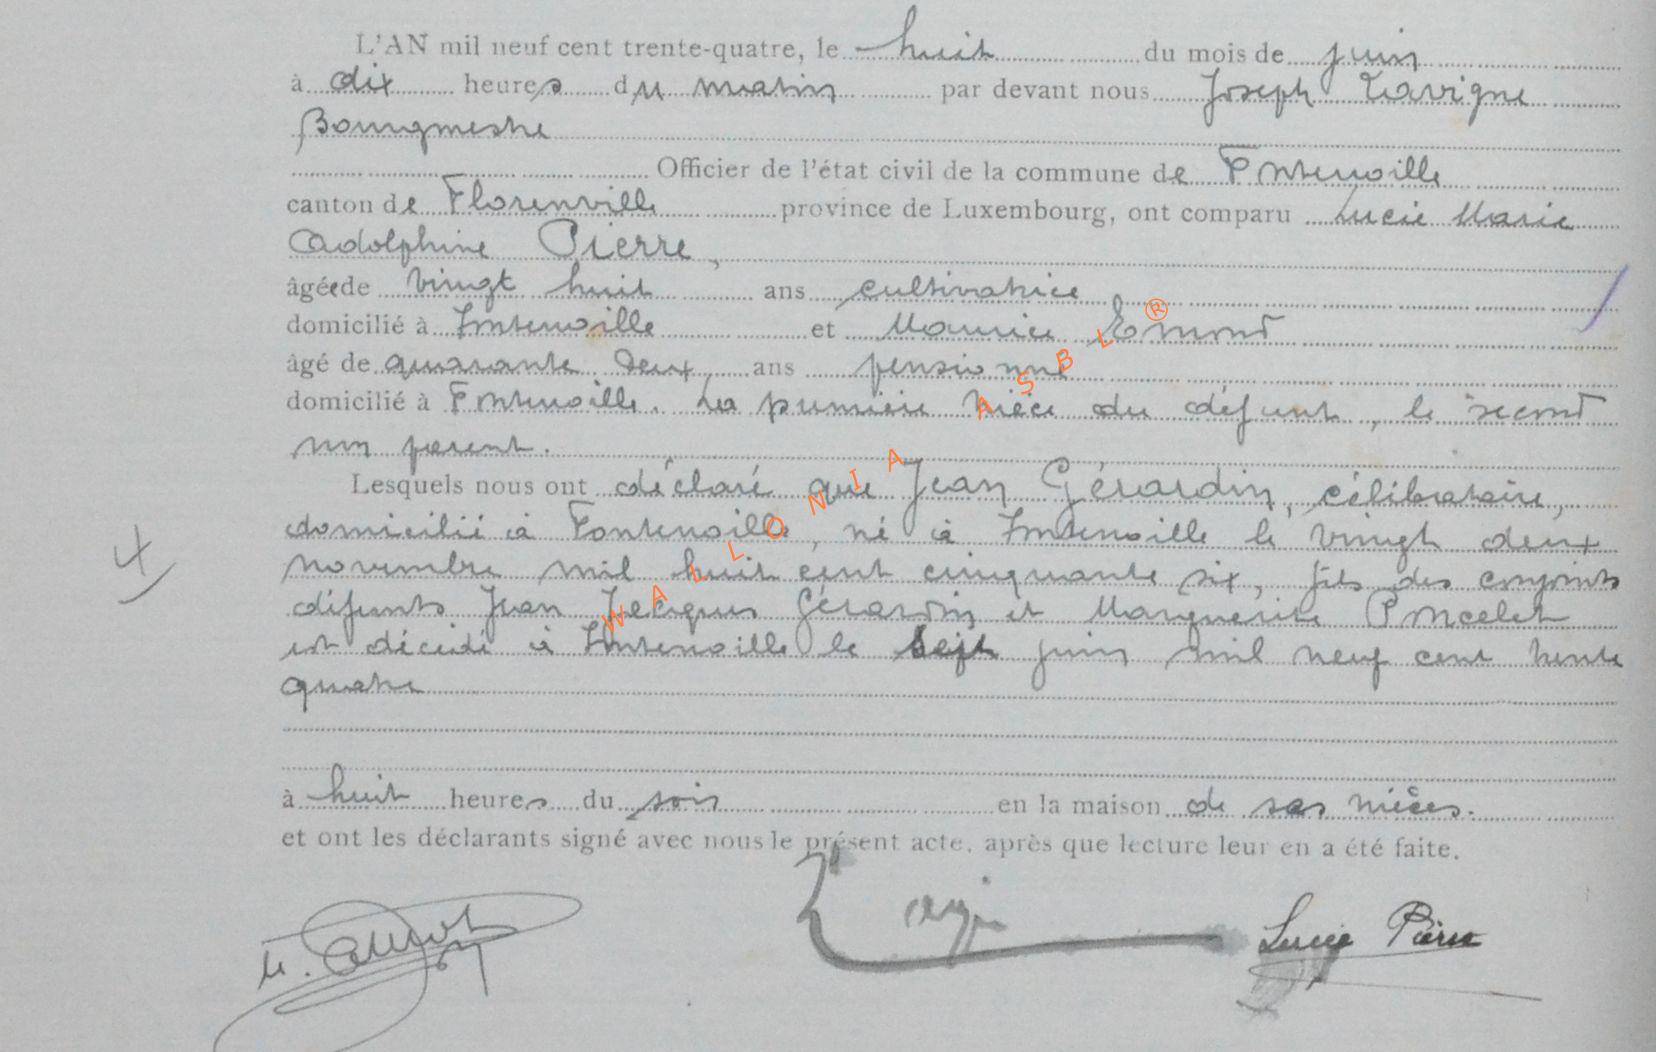 L'AN mil neuf cent trente-quatre, le huit du mois de juin
à dix heures du matin par devant nous Joseph Lavigne
Bourgmestre
Officier de l'état civil de la commune de Fontenoille
canton de Florenville province de Luxembourg, ont comparu Lucie Marie
Adolphine Pierre,
âgée de vingt huit ans cultivatrice
domicilié à Fontenoille et Maurice Emond
âgé de quarante deux ans pensionné
domicilié à Fontenoille. La première nièce du défunt, le second
non parent.
Lesquels nous ont déclaré que Jean Gérardin, célibataire,
domicilié à Fontenoille, né à Fontenoille le vingt deux
novembre mil huit cent cinquante six, fils des conjoints
défunts Jean Jacques Gérardin et Marguerite Poncelet
est décédé à Fontenoille le sept juin mil neuf cent trente
quatre
à huit heures du soir en la maison de ses nièces.
et ont les déclarants signé avec nous le présent acte, après que lecture leur en a été faite.
4
M. Emond
Lavigne
Lucie Pierre
WALLONIA ASBL ®